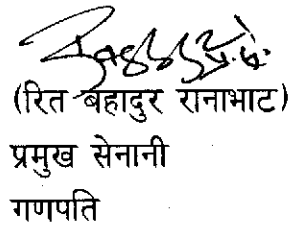 (रित बहादुर रानाभाट)
प्रमुख सेनानी
गणपति